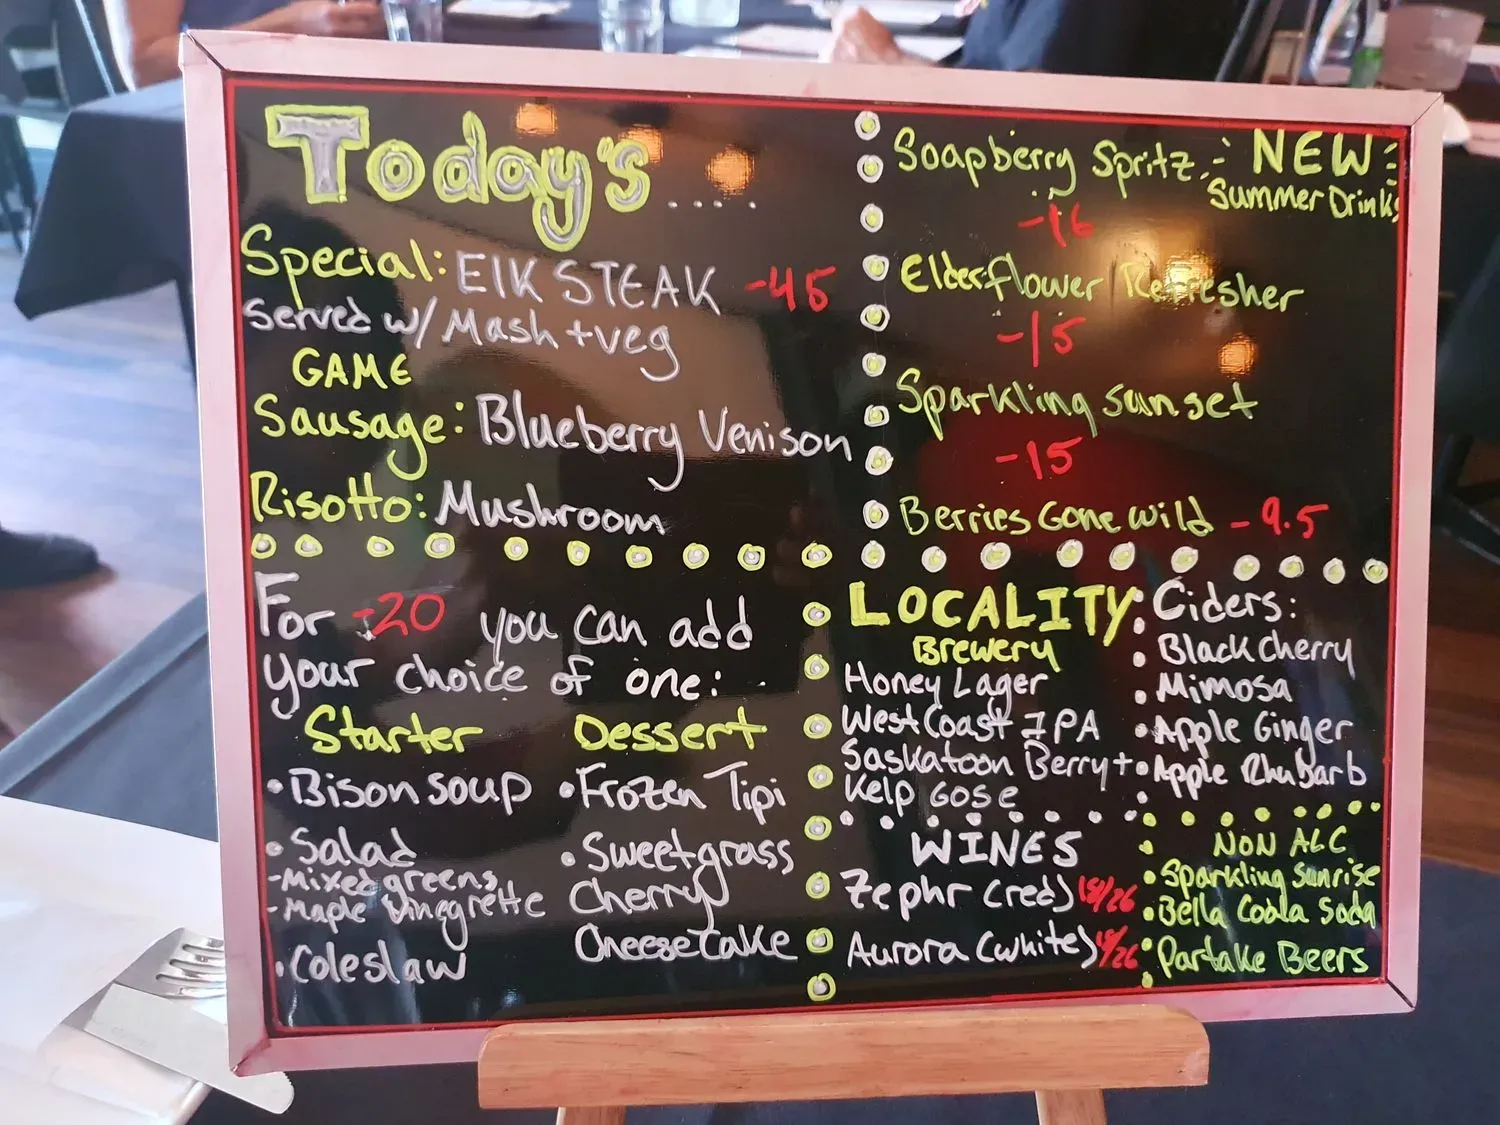 Today's.....
Special: ElK STEAK -45
Served w/ Mash + veg
GAME
Sausage: Blueberry Venison
Risotto: Mushroom
For -20 you can add
your choice of one:
Starter
• Bison soup
• Salad
- Mixed greens
- Maple Vinegrette
• Coleslaw
Dessert
• Frozen Tipi
• Sweetgrass
Cherry
Cheesecake
NEW
Summer Drinks
Soapberry Spritz
-16
Elderflower Refresher
-15
Sparkling sunset
-15
Berries Gone wild -9.5
LOCALITY
Brewery
Honey Lager
West Coast IPA
Saskatoon Berry +
Kelp Gose
Ciders:
• Black cherry
• Mimosa
• Apple Ginger
• Apple Rhubarb
WINES
Zephr (red)
Aurora (white)
NON ALC
• Sparkling sunrise
• Bella Coola Soda
• Partake Beers